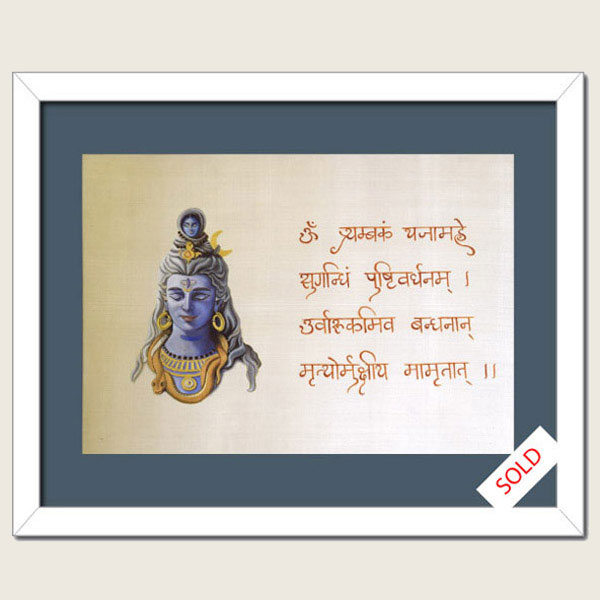 ॐ त्र्यम्बकं यजामहे
सुगन्धिं पुष्टिवर्धनम् ।
उर्वारुकमिव बन्धनान्
मृत्योर्मुक्षीय मामृतात् ।।
SOLD